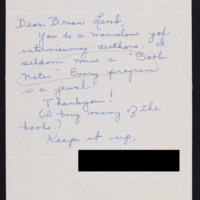 Dear Brian Lamb,
You do a marvelous job
interviewing authors. I
seldom miss a "Book
Notes". Every program
is a jewel.
Thank you!
(I buy many of the
books.)
Keep it up,